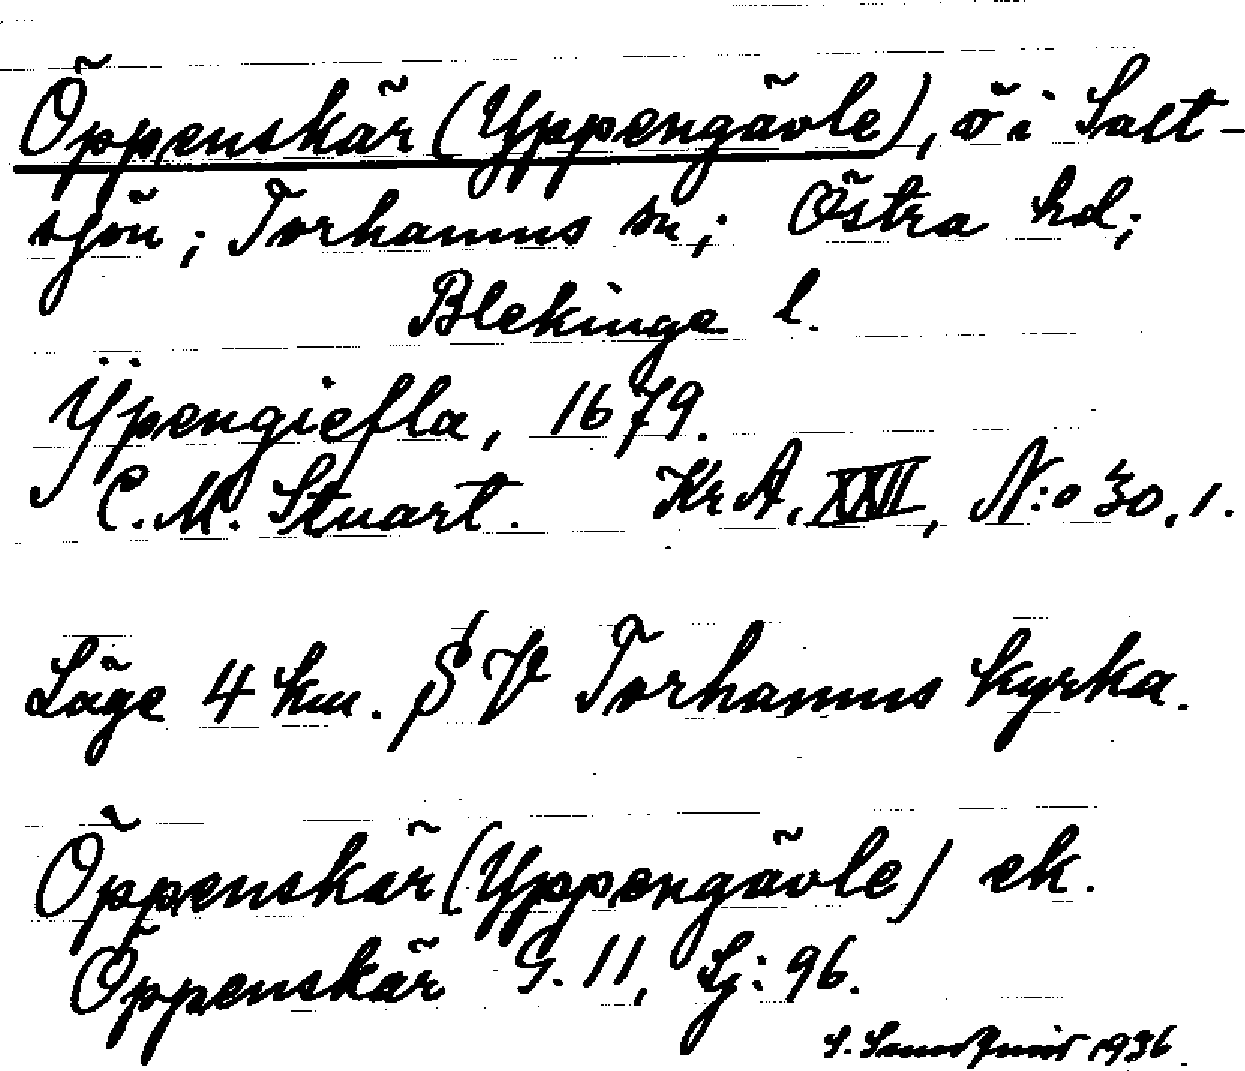 Öppenskär (Yppengävle), ö i Salt-
sjön; Torhamns sn; Östra hd;
Blekinge l.
Ypengiefla, 1679.
C. M. Stuart. Kr A, XXII, N:o 30, 1.
Läge 4 km. SV Torhamns kyrka.
Öppenskär (Yppengävle) ek.
Öppenskär G. 11, Sj: 96.
1936